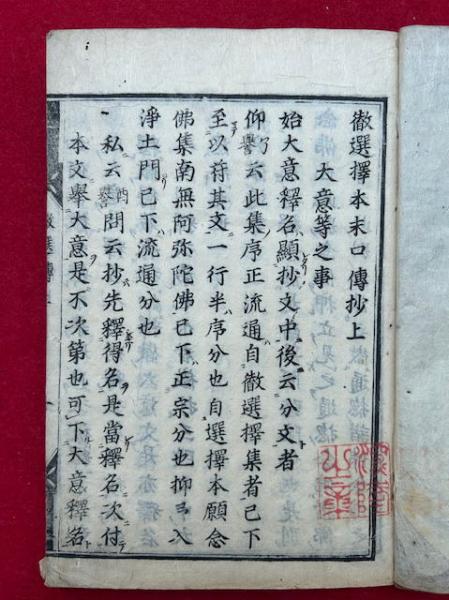 徹選擇本末口傳抄上
大意等之事
始大意釋名顯抄文中後云分文者
仰云此集序正流通自徹選擇集者已下
至以符其文一行半序分也自選擇本願念
佛集南無阿弥陀佛已下正宗分也抑入
淨土門已下流通分也
私云酉譽問云抄先釋得名是當釋名次付
本文舉大意是不次第也可下大意釋名